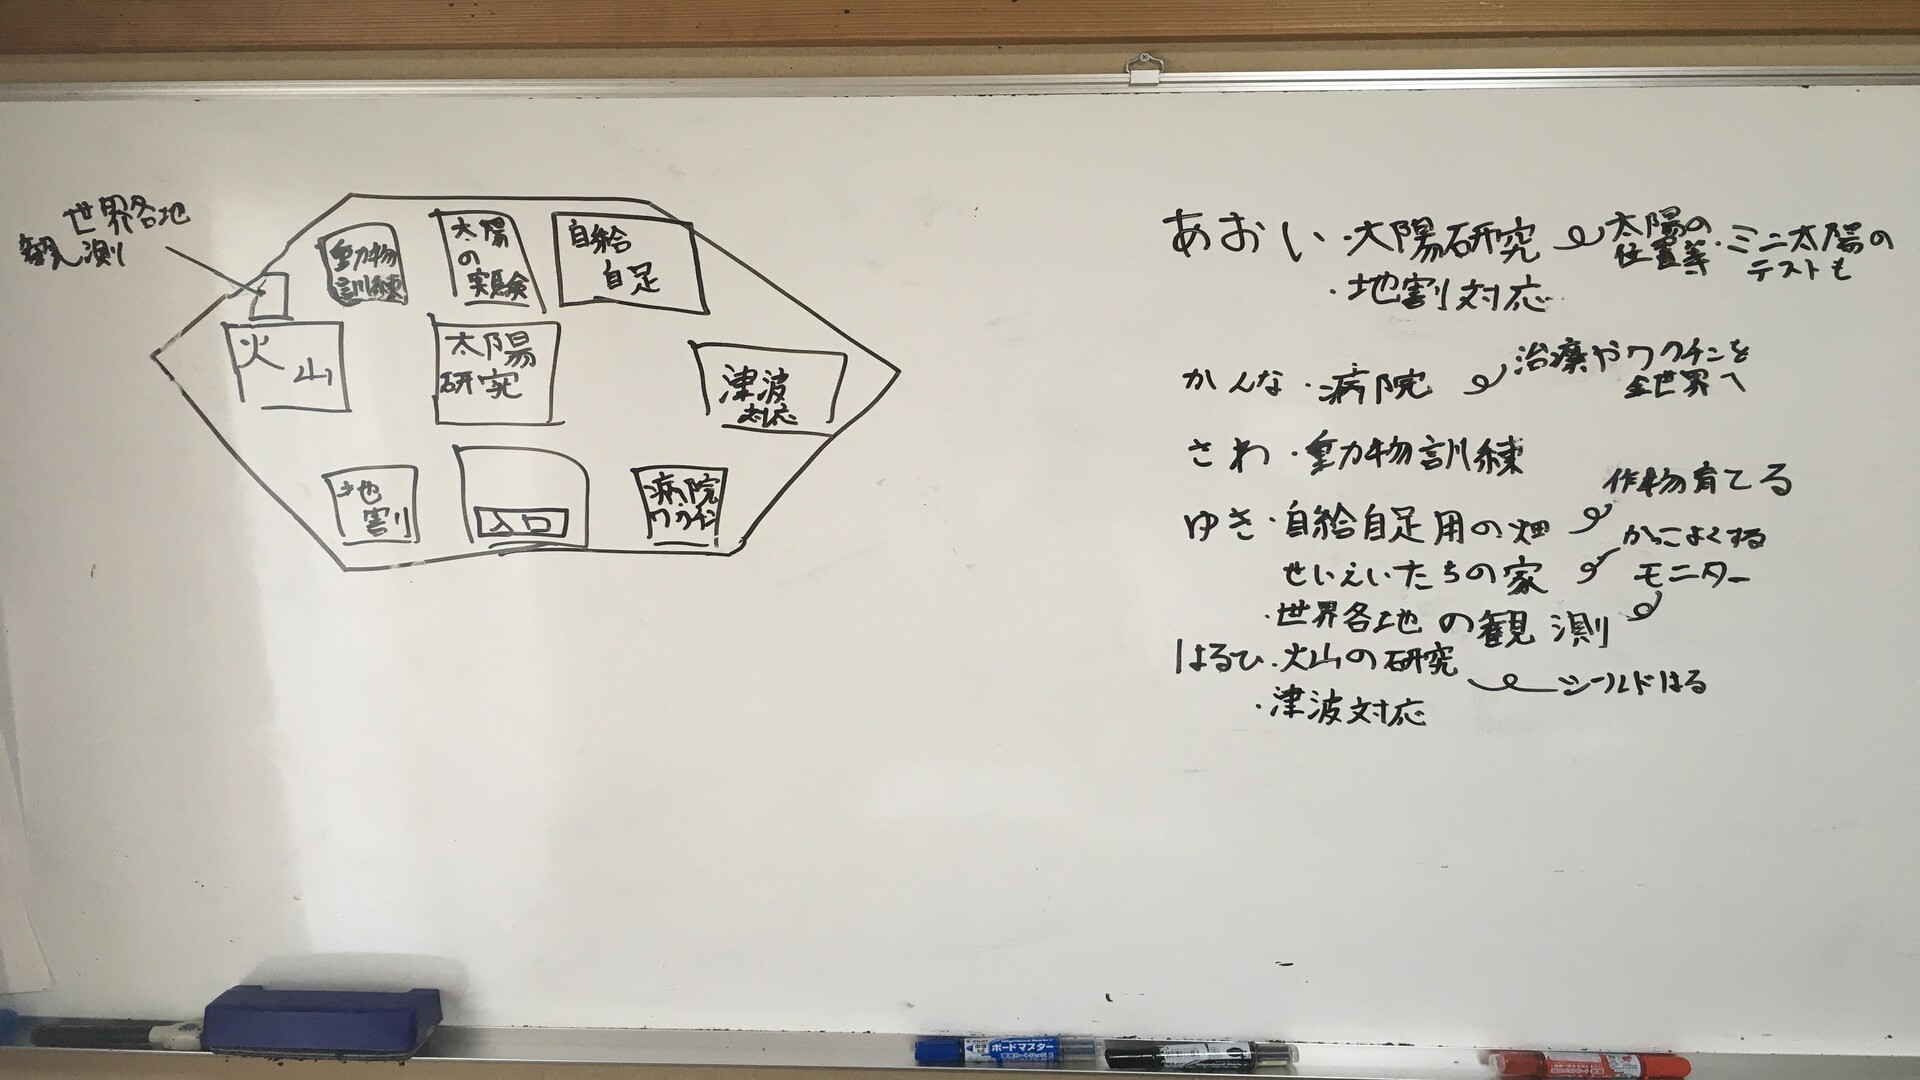 世界各地
観測
動物
訓練
太陽
の
実験
自給
自足
火
山
太陽
研究
津波
対応
地
割
入口
病院
ワクチン
あおい・太陽研究
太陽の
位置等・ミニ太陽の
テストも
・地割対応
かんな・病院
治療やワクチンを
全世界へ
さわ・動物訓練
ゆき・自給自足用の畑
作物育てる
せいえいたちの家
かっこよくする
モニター
・世界各地の観測
はるひ・火山の研究
シールドはる
・津波対応
ボードマスター